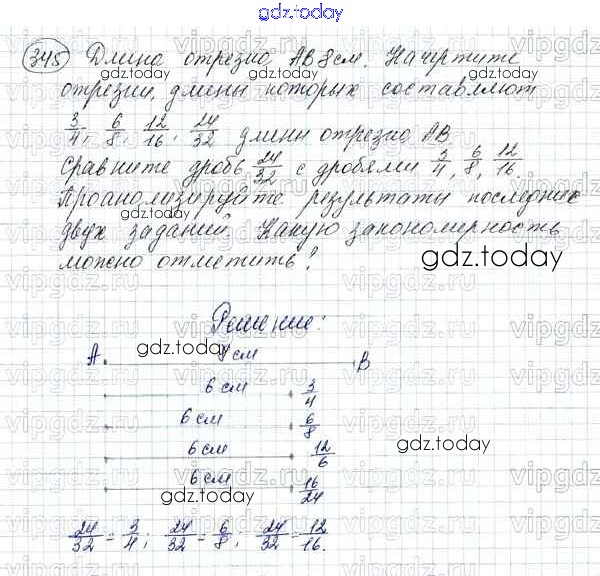 gdz.today
345 Длина отрезка AB 8 см. Начертите
отрезки, длины которых составляют
3/4, 6/8, 12/16, 24/32 длины отрезка AB.
Сравните дробь 24/32 с дробями 3/4, 6/8, 12/16.
Проанализируйте результаты последних
двух заданий. Какую закономерность
можно отметить?
gdz.today
Решение:
A 8 см B
gdz.today
6 см 3/4
6 см 6/8
6 см 12/6
gdz.today
6 см 16/24
gdz.today
24/32 = 3/4; 24/32 = 6/8; 24/32 = 12/16.